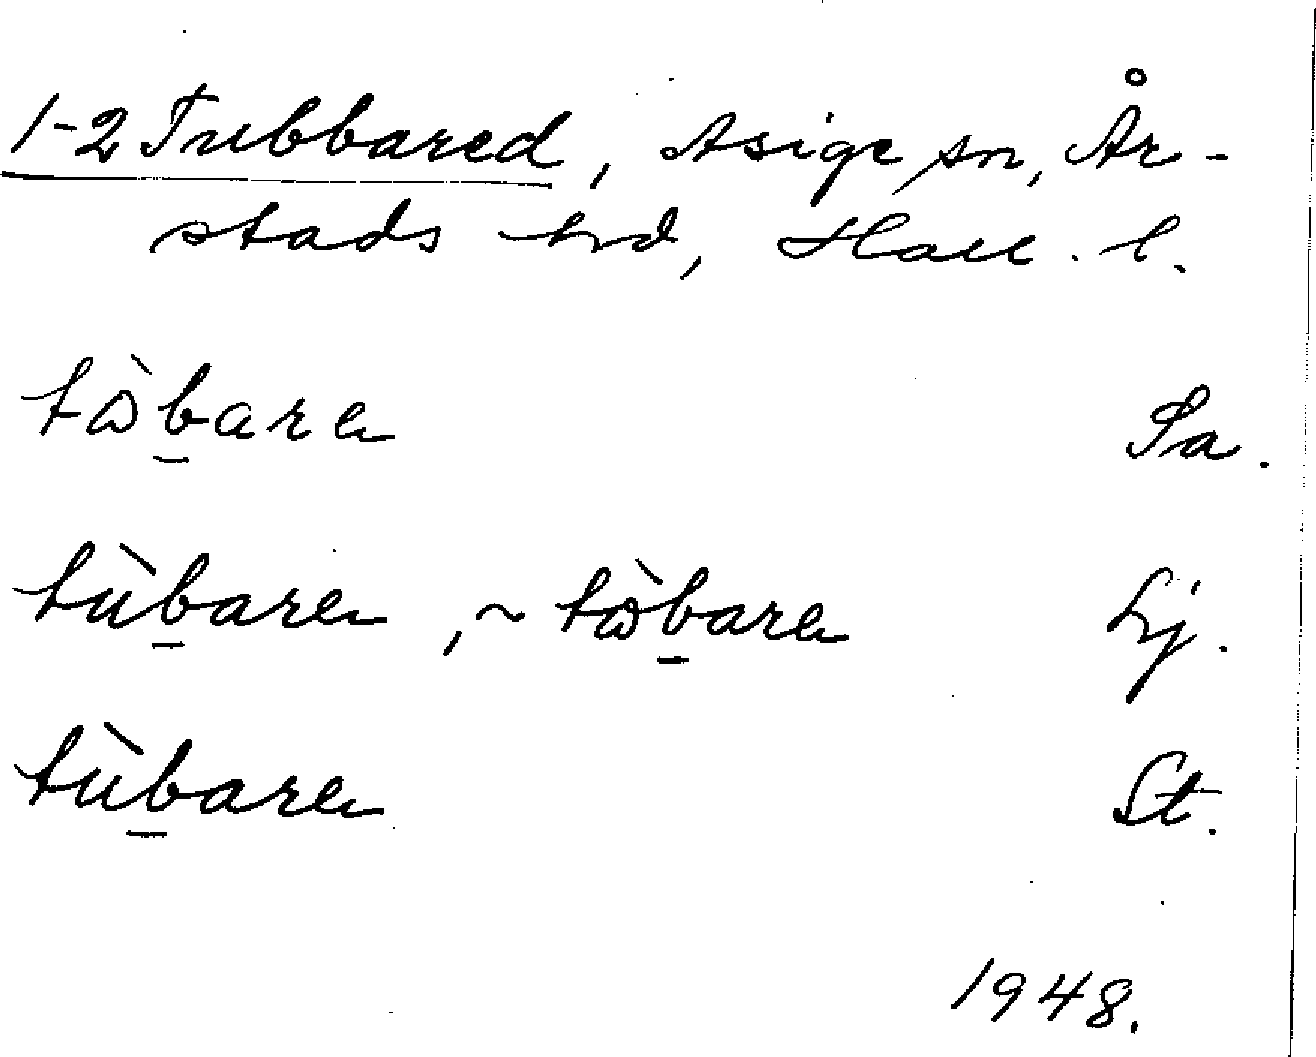 1-2 Tubbared, Asige sn, År-
stads hd, Hall. l.
tὼb̲are Sa.
tùb̲are, ~ tὼb̲are Lj.
tùb̲are St.
1948.